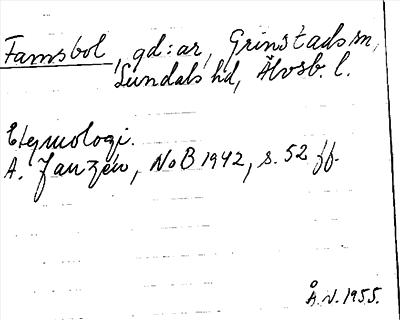 Famsbol, gd:ar, Grinstads sn,
Sundals hd, Älvsb. l.
Etymologi.
A. Janzén, NoB 1942, s. 52 ff.
Å.N. 1955.